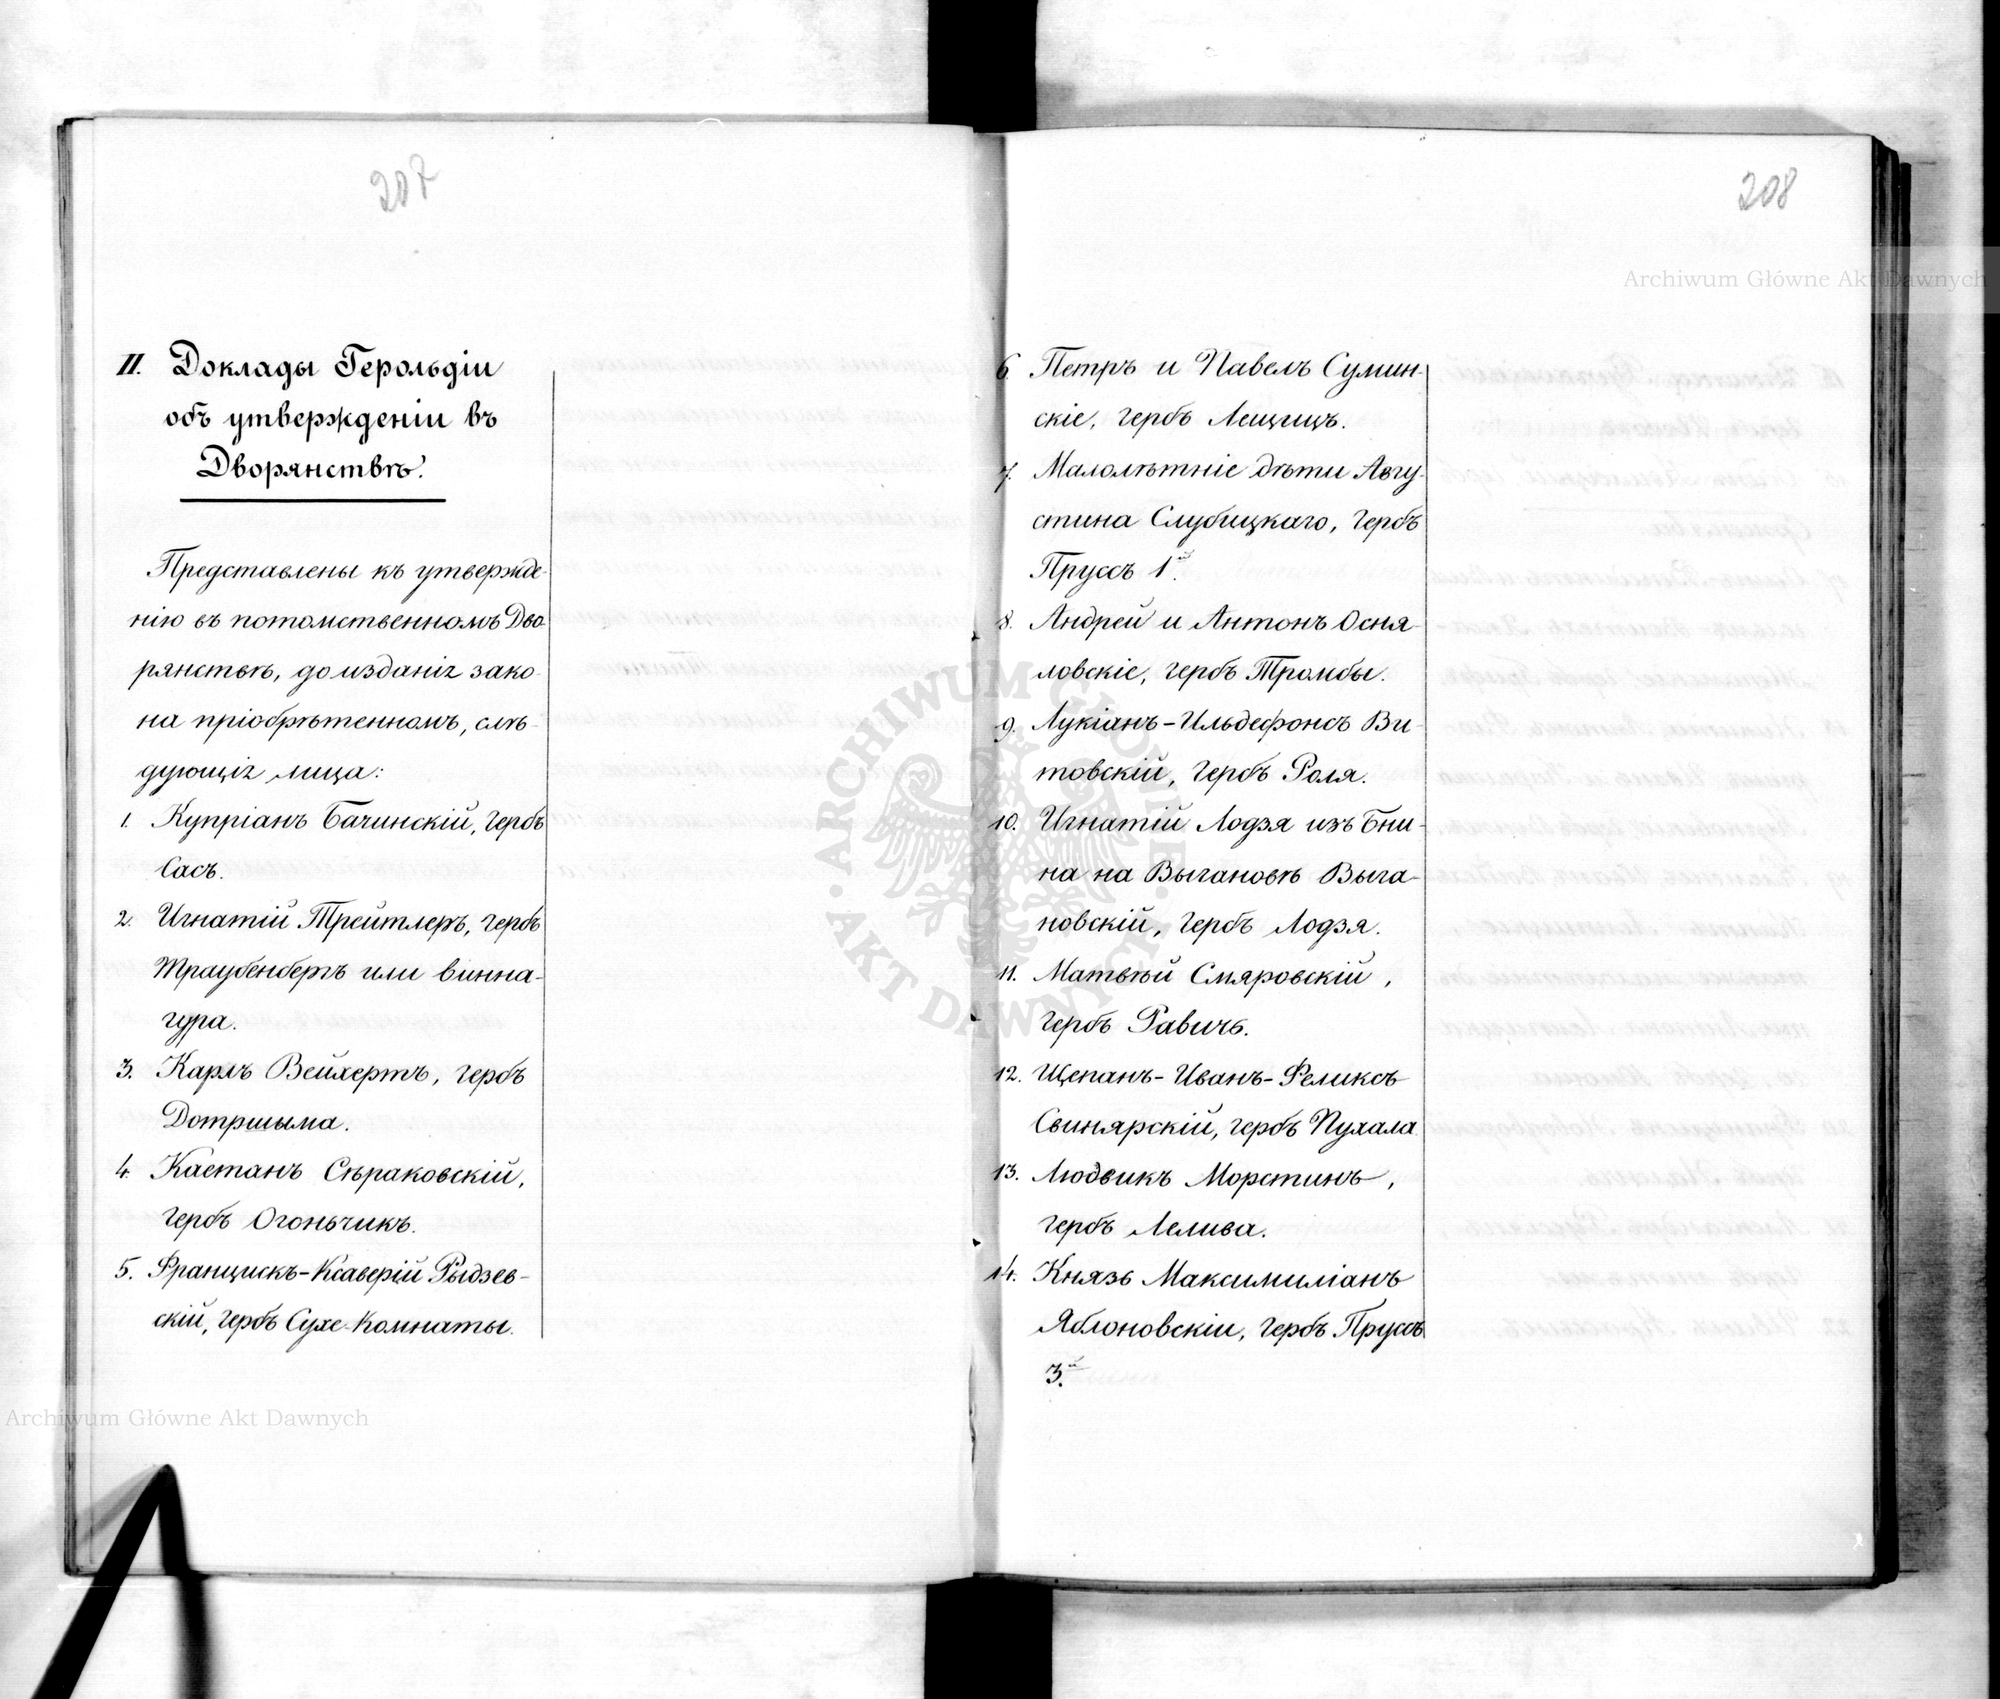 207
II. Доклады Герольдіи
объ утвержденіи въ
Дворянствѣ.
Представлены къ утвержде-
нію въ потомственномъ Дво
рянствѣ, до изданія зако-
на пріобрѣтенномъ, слѣ-
дующія лица:
1. Купріанъ Бачинскій, гербъ
Сасъ.
2. Игнатій Трейтлеръ, гербъ
Траубенбергъ или винна-
гура.
3. Карлъ Вейхертъ, гербъ
Дотршыма.
4. Каетанъ Сѣраковскій,
гербъ Огоньчикъ.
5. Францискъ-Ксаверій Рыдзев-
скій, гербъ Сухе-Комнаты.
208
6. Петръ и Павелъ Сумин-
скіе, гербъ Лещицъ.
7. Малолѣтніе дѣти Авгу-
стина Слубицкаго, гербъ
Пруссъ 1й.
8. Андрей и Антонъ Осня-
ловскіе, гербъ Тромбы.
9. Лукіанъ-Ильдефонсъ Ви-
товскій, гербъ Роля.
10. Игнатій Лодзя изъ Бни-
на на Выгановѣ Выга-
новскій, гербъ Лодзя.
11. Матвѣй Смяровскій,
гербъ Равичъ.
12. Щепанъ-Иванъ-Феликсъ
Свинярскій, гербъ Пухала
13. Людвикъ Морстинъ,
гербъ Лелива.
14. Князь Максимиліанъ
Яблоновскій, гербъ Пруссъ
3й.
Archiwum Główne Akt Dawnych
Archiwum Główne Akt Dawnych
ARCHIWUM GŁÓWNE AKT DAWNYCH